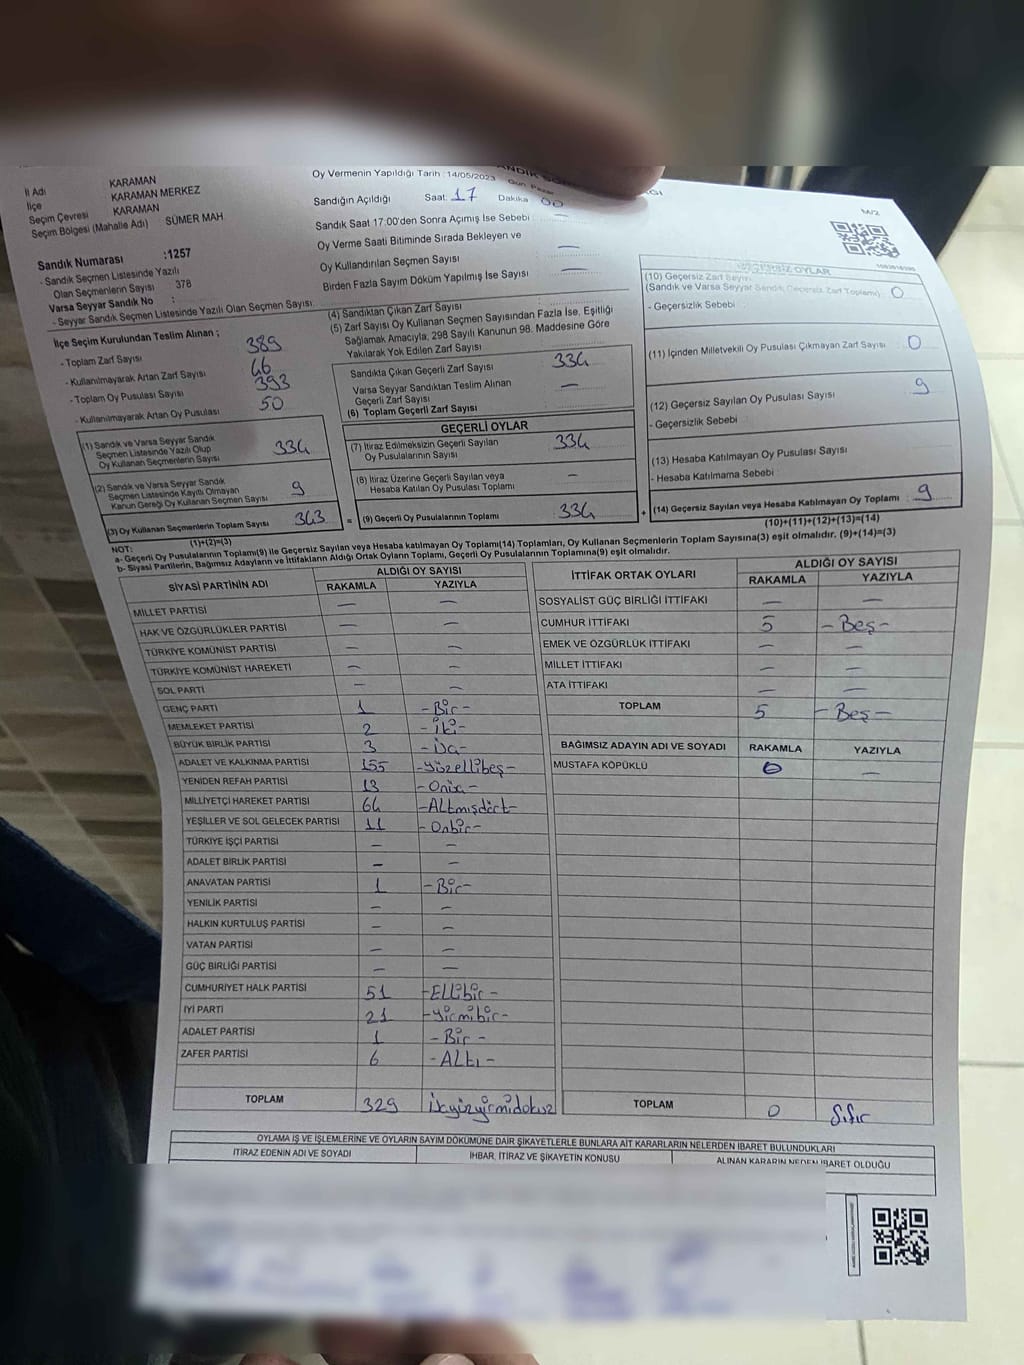 İl Adı KARAMAN
İlçe KARAMAN MERKEZ
Seçim Çevresi KARAMAN
Seçim Bölgesi (Mahalle Adı) SÜMER MAH
Sandık Numarası :1257
- Sandık Seçmen Listesinde Yazılı
Olan Seçmenlerin Sayısı 378
Varsa Seyyar Sandık No :
- Seyyar Sandık Seçmen Listesinde Yazılı Olan Seçmen Sayısı:
İlçe Seçim Kurulundan Teslim Alınan ;
- Toplam Zarf Sayısı 389
- Kullanılmayarak Artan Zarf Sayısı 46
- Toplam Oy Pusulası Sayısı 393
- Kullanılmayarak Artan Oy Pusulası 50
(1) Sandık ve Varsa Seyyar Sandık
Seçmen Listesinde Yazılı Olup
Oy Kullanan Seçmenlerin Sayısı 334
(2) Sandık ve Varsa Seyyar Sandık
Seçmen Listesinde Kayıtlı Olmayan
Kanun Gereği Oy Kullanan Seçmen Sayısı 9
(3) Oy Kullanan Seçmenlerin Toplam Sayısı 343
(1)+(2)=(3)
Oy Vermenin Yapıldığı Tarih : 14/05/2023 Gün Pazar
Sandığın Açıldığı Saat: 17 Dakika 00
Sandık Saat 17:00'den Sonra Açımış İse Sebebi : —
Oy Verme Saati Bitiminde Sırada Bekleyen ve
Oy Kullandırılan Seçmen Sayısı —
Birden Fazla Sayım Döküm Yapılmış İse Sayısı —
(4) Sandıktan Çıkan Zarf Sayısı
(5) Zarf Sayısı Oy Kullanan Seçmen Sayısından Fazla İse, Eşitliği
Sağlamak Amacıyla, 298 Sayılı Kanunun 98. Maddesine Göre
Yakılarak Yok Edilen Zarf Sayısı
Sandıkta Çıkan Geçerli Zarf Sayısı 334
Varsa Seyyar Sandıktan Teslim Alınan
Geçerli Zarf Sayısı —
(6) Toplam Geçerli Zarf Sayısı
GEÇERLİ OYLAR
(7) İtiraz Edilmeksizin Geçerli Sayılan
Oy Pusulalarının Sayısı 334
(8) İtiraz Üzerine Geçerli Sayılan veya
Hesaba Katılan Oy Pusulası Toplamı —
= (9) Geçerli Oy Pusulalarının Toplamı 334 +
M/2
GEÇERSİZ OYLAR
(10) Geçersiz Zarf Sayısı
(Sandık ve Varsa Seyyar Sandık Geçersiz Zarf Toplamı) 0
- Geçersizlik Sebebi :
(11) İçinden Milletvekili Oy Pusulası Çıkmayan Zarf Sayısı 0
(12) Geçersiz Sayılan Oy Pusulası Sayısı 9
- Geçersizlik Sebebi :
(13) Hesaba Katılmayan Oy Pusulası Sayısı
- Hesaba Katılmama Sebebi :
(14) Geçersiz Sayılan veya Hesaba Katılmayan Oy Toplamı : 9
(10)+(11)+(12)+(13)=(14)
NOT:
a- Geçerli Oy Pusulalarının Toplamı(9) ile Geçersiz Sayılan veya Hesaba katılmayan Oy Toplamı(14) Toplamları, Oy Kullanan Seçmenlerin Toplam Sayısına(3) eşit olmalıdır. (9)+(14)=(3)
b- Siyasi Partilerin, Bağımsız Adayların ve İttifakların Aldığı Ortak Oyların Toplamı, Geçerli Oy Pusulalarının Toplamına(9) eşit olmalıdır.
SİYASİ PARTİNİN ADI ALDIĞI OY SAYISI
RAKAMLA YAZIYLA
MİLLET PARTİSİ — —
HAK VE ÖZGÜRLÜKLER PARTİSİ — —
TÜRKİYE KOMÜNİST PARTİSİ — —
TÜRKİYE KOMÜNİST HAREKETİ — —
SOL PARTİ — —
GENÇ PARTİ 1 -Bir-
MEMLEKET PARTİSİ 2 -İki-
BÜYÜK BİRLİK PARTİSİ 3
ADALET VE KALKINMA PARTİSİ 155 -Yüzellibeş-
YENİDEN REFAH PARTİSİ 13
MİLLİYETÇİ HAREKET PARTİSİ 64 -Altmışdört-
YEŞİLLER VE SOL GELECEK PARTİSİ 11 -Onbir-
TÜRKİYE İŞÇİ PARTİSİ — —
ADALET BİRLİK PARTİSİ — —
ANAVATAN PARTİSİ 1 -Bir-
YENİLİK PARTİSİ — —
HALKIN KURTULUŞ PARTİSİ — —
VATAN PARTİSİ — —
GÜÇ BİRLİĞİ PARTİSİ — —
CUMHURİYET HALK PARTİSİ 51 -Ellibir-
İYİ PARTİ 21 -Yirmibir-
ADALET PARTİSİ 1 -Bir-
ZAFER PARTİSİ 6 -Altı-
TOPLAM 329
İTTİFAK ORTAK OYLARI ALDIĞI OY SAYISI
RAKAMLA YAZIYLA
SOSYALİST GÜÇ BİRLİĞİ İTTİFAKI — —
CUMHUR İTTİFAKI 5 -Beş-
EMEK VE ÖZGÜRLÜK İTTİFAKI — —
MİLLET İTTİFAKI — —
ATA İTTİFAKI — —
TOPLAM 5 -Beş-
BAĞIMSIZ ADAYIN ADI VE SOYADI RAKAMLA YAZIYLA
MUSTAFA KÖPÜKLÜ 0 —
TOPLAM 0 Sıfır
OYLAMA İŞ VE İŞLEMLERİNE VE OYLARIN SAYIM DÖKÜMÜNE DAİR ŞİKAYETLERLE BUNLARA AİT KARARLARIN NELERDEN İBARET BULUNDUKLARI
İTİRAZ EDENİN ADI VE SOYADI İHBAR, İTİRAZ VE ŞİKAYETİN KONUSU ALINAN KARARIN NEDEN İBARET OLDUĞU